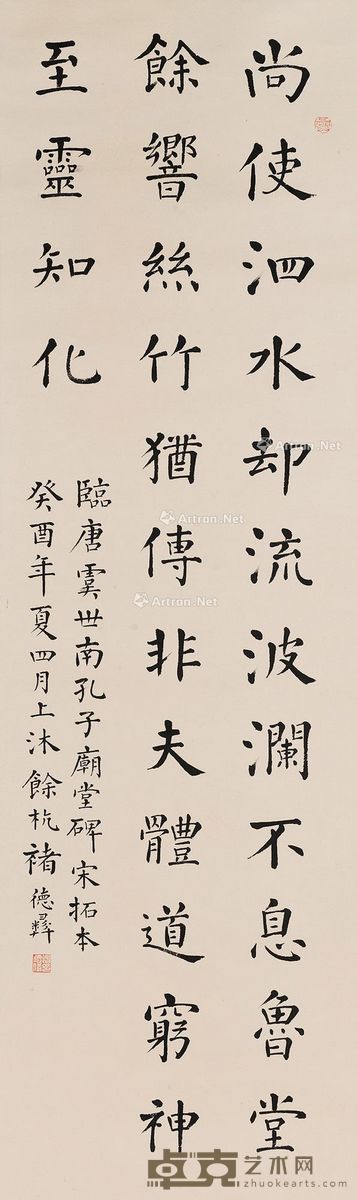 尚使泗水却流波瀾不息魯堂
餘響絲竹猶傳非夫體道窮神
至靈知化
臨唐虞世南孔子廟堂碑宋拓本
癸酉年夏四月上沐餘杭褚德彝
Artron.Net
Artron.Net
Artron.Net
卓克艺术网
zhuokearts.com